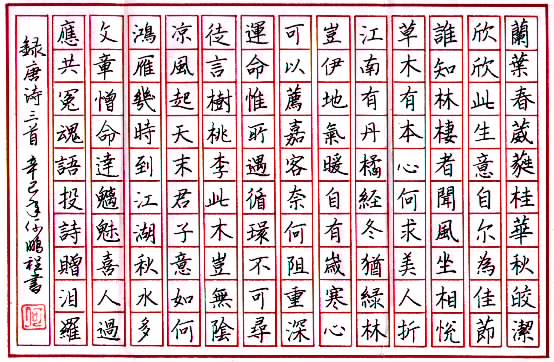 蘭葉春葳蕤桂華秋皎潔
欣欣此生意自尔為佳節
誰知林棲者聞風坐相悅
草木有本心何求美人折
江南有丹橘経冬猶綠林
豈伊地氣暖自有嵗寒心
可以薦嘉客奈何阻重深
運命惟所遇循環不可尋
徒言樹桃李此木豈無陰
凉風起天末君子意如何
鴻雁幾時到江湖秋水多
文章憎命達魑魅喜人過
應共冤魂語投詩贈汨羅
録唐诗三首 辛巳年 鵬程書